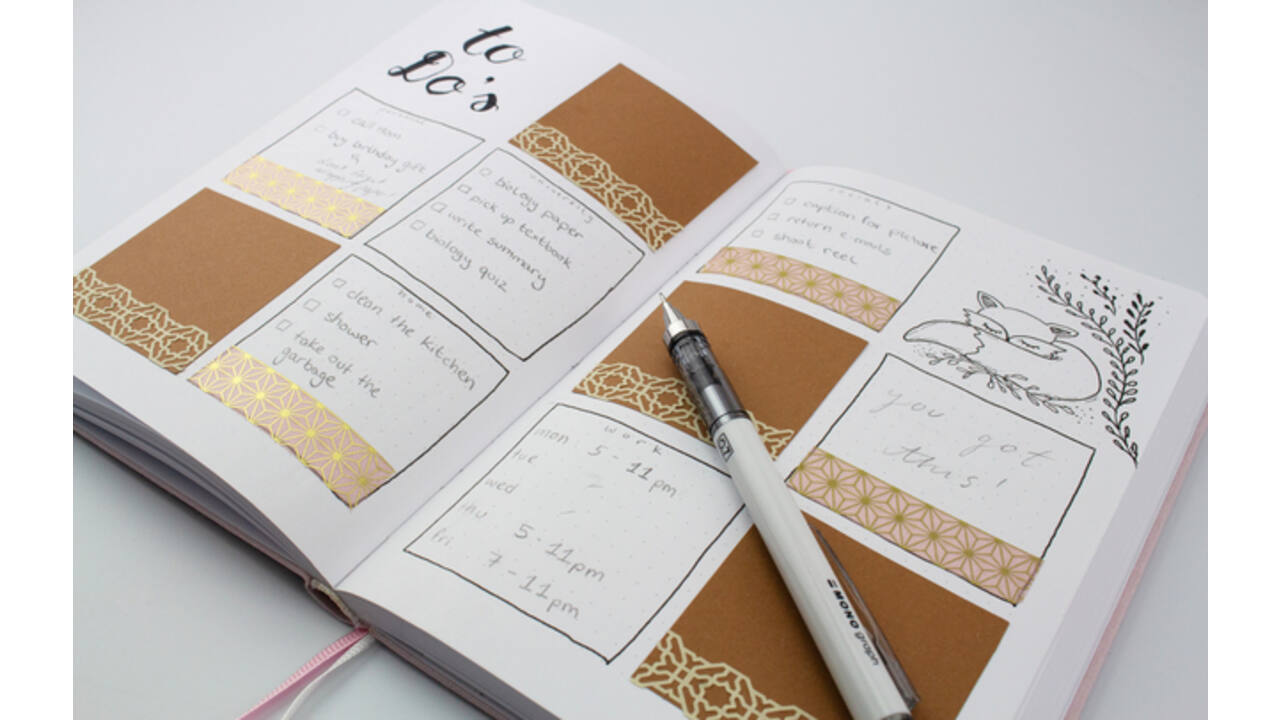 to
Do's
call mom
buy birthday gift
university
biology paper
pick up textbook
write summary
biology quiz
home
clean the kitchen
shower
take out the
garbage
socials
caption for picture
return e-mails
shoot reel
work
mon 5 - 11pm
tue -
wed -
thu 5 - 11pm
fri 7 - 11pm
you got
this!
MONO graph